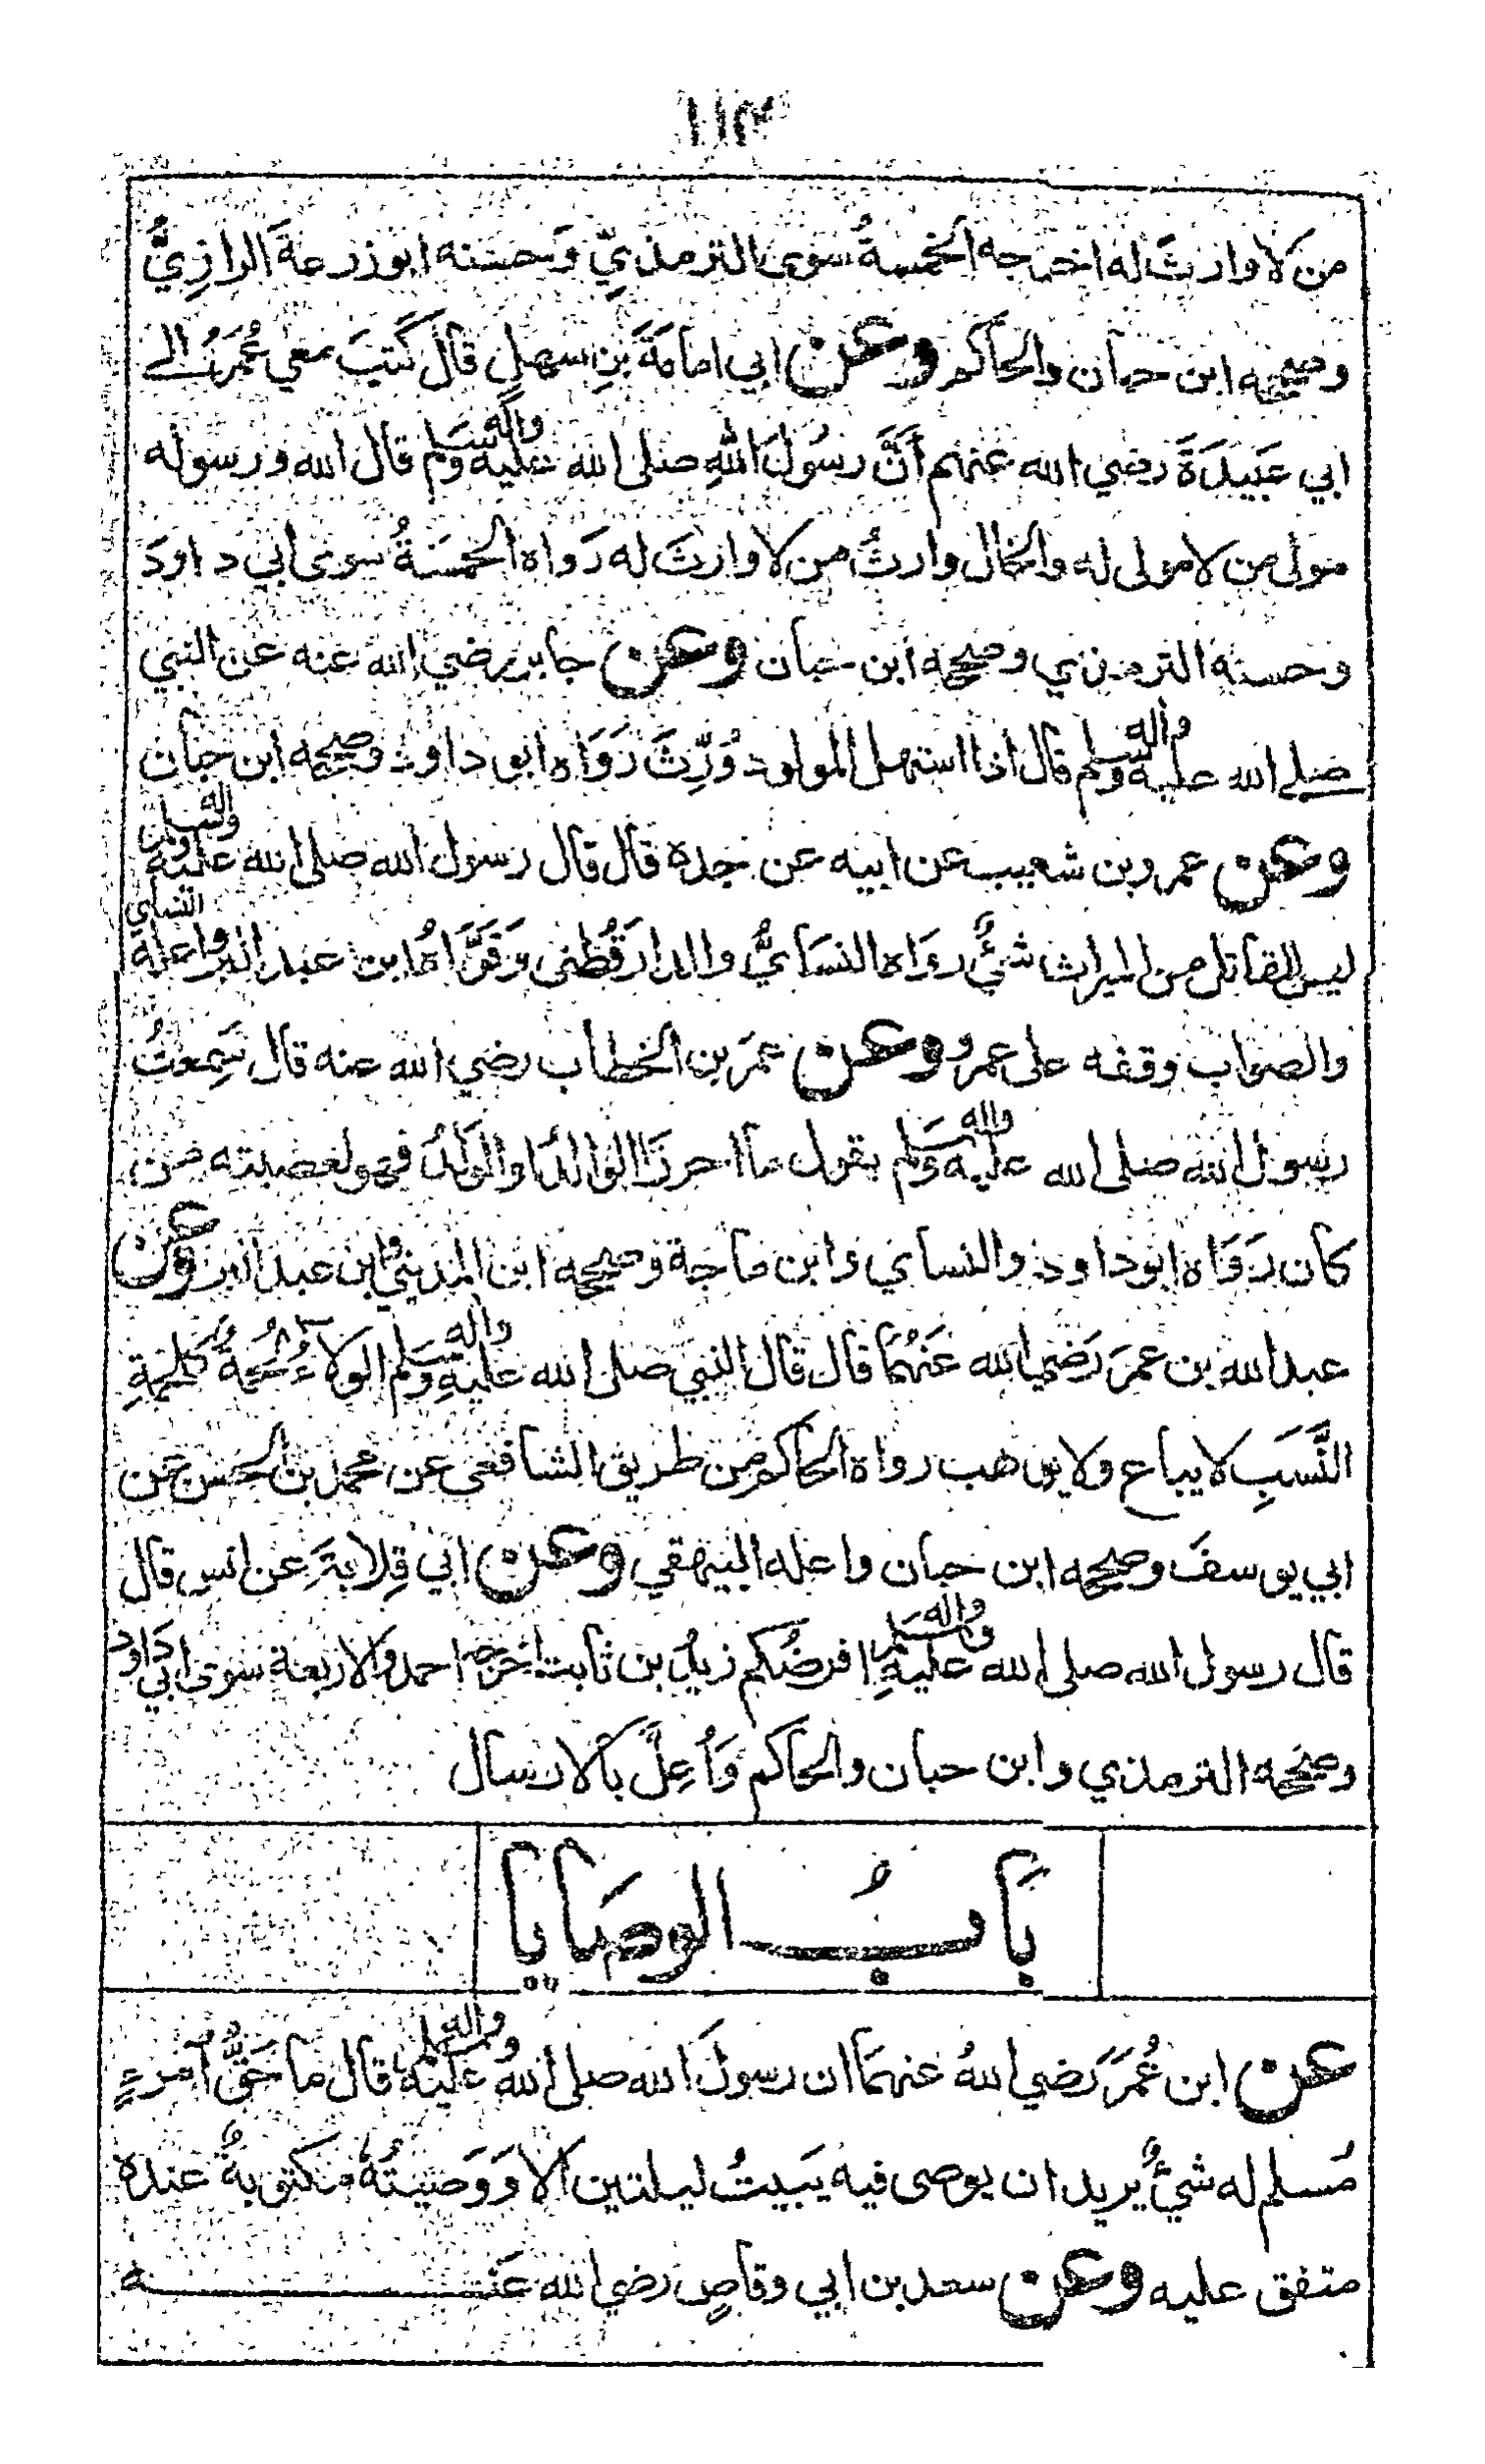 ١١٣
من لا وارث له اخرجه الخمسةُ سوى الترمذيِّ وَحسنه ابو زرعةَ الرازيُّ
وصححه ابن حبان والحاكم وعن ابي امامَةَ بنِ سهلٍ قالَ كَتَبَ معي عُمَرُ الے
ابي عَبَيدَةَ رضي الله عنهم أنَّ رسُولَ اللهِ صلى الله عليه واٰله وسلم قال الله ورسوله
مولى من لا مولى له والخال وارثُ من لا وارثَ له رَواه الخمسَةُ سوى ابي داودَ
وحسنه الترمذي وصححه ابن حبان وعن جابر رضي الله عنه عن النبي
صلے الله عليه واٰله وسلم قال اذا استهل المولود وُرِّثَ رَوَاه ابو داود وصححه ابن حبان
وعن عمرو بن شعيب عن ابيه عن جده قال قال رسول الله صلى الله عليه واٰله وسلم
ليس للقاتل من الميراث شيءٌ رواه النسَايُّ والدارقُطنى وَقَوَّاهُ ابن عبد البر واعله النساي
والصواب وقفه على عمرو وعن عمرَ بن الخطاب رضي الله عنه قال سَمِعتُ
رسول الله صلى الله عليه واٰله وسلم يقول ما احرزَ الوالدُ او الولدُ فهو لعصبته من
كان رَوَاه ابو داود والنساي وابن ماجة وصححه ابن المديني وابن عبد البر وعن
عبد الله بن عمرَ رَضي الله عَنهُما قال قال النبي صلى الله عليهِ واٰله وسلم الولاءُ لُحمةٌ كلحمةِ
النَّسَبِ لا يباع ولا يوهب رواه الحاكم من طريق الشافعى عن محمد بن الحسن عن
ابي يوسفَ وصححه ابن حبان واعله البيهقي وعن ابي قِلابةَ عن انس قال
قال رسول الله صلى الله عليهِ واٰله وسلم افرضُكم زيدُ بن ثابت اخرجه احمد والاربعة سوى ابي داود
وصححه الترمذي وابن حبان والحاكم وَاُعِلَّ بالارسال
بَابُ الوصَايا
عن ابن عُمَرَ رَضي اللهُ عنهمَا ان رسولَ الله صلى اللهُ عليه واٰله وسلم قال ما حَقُّ امرءٍ
مُسلم له شيءٌ يريد ان يوصى فيه يَبيتُ ليلتين اِلا وَوَصيتُهُ مكتوبةٌ عنده
متفق عليه وعن سعد بن ابي وقاصٍ رضي الله عَنه